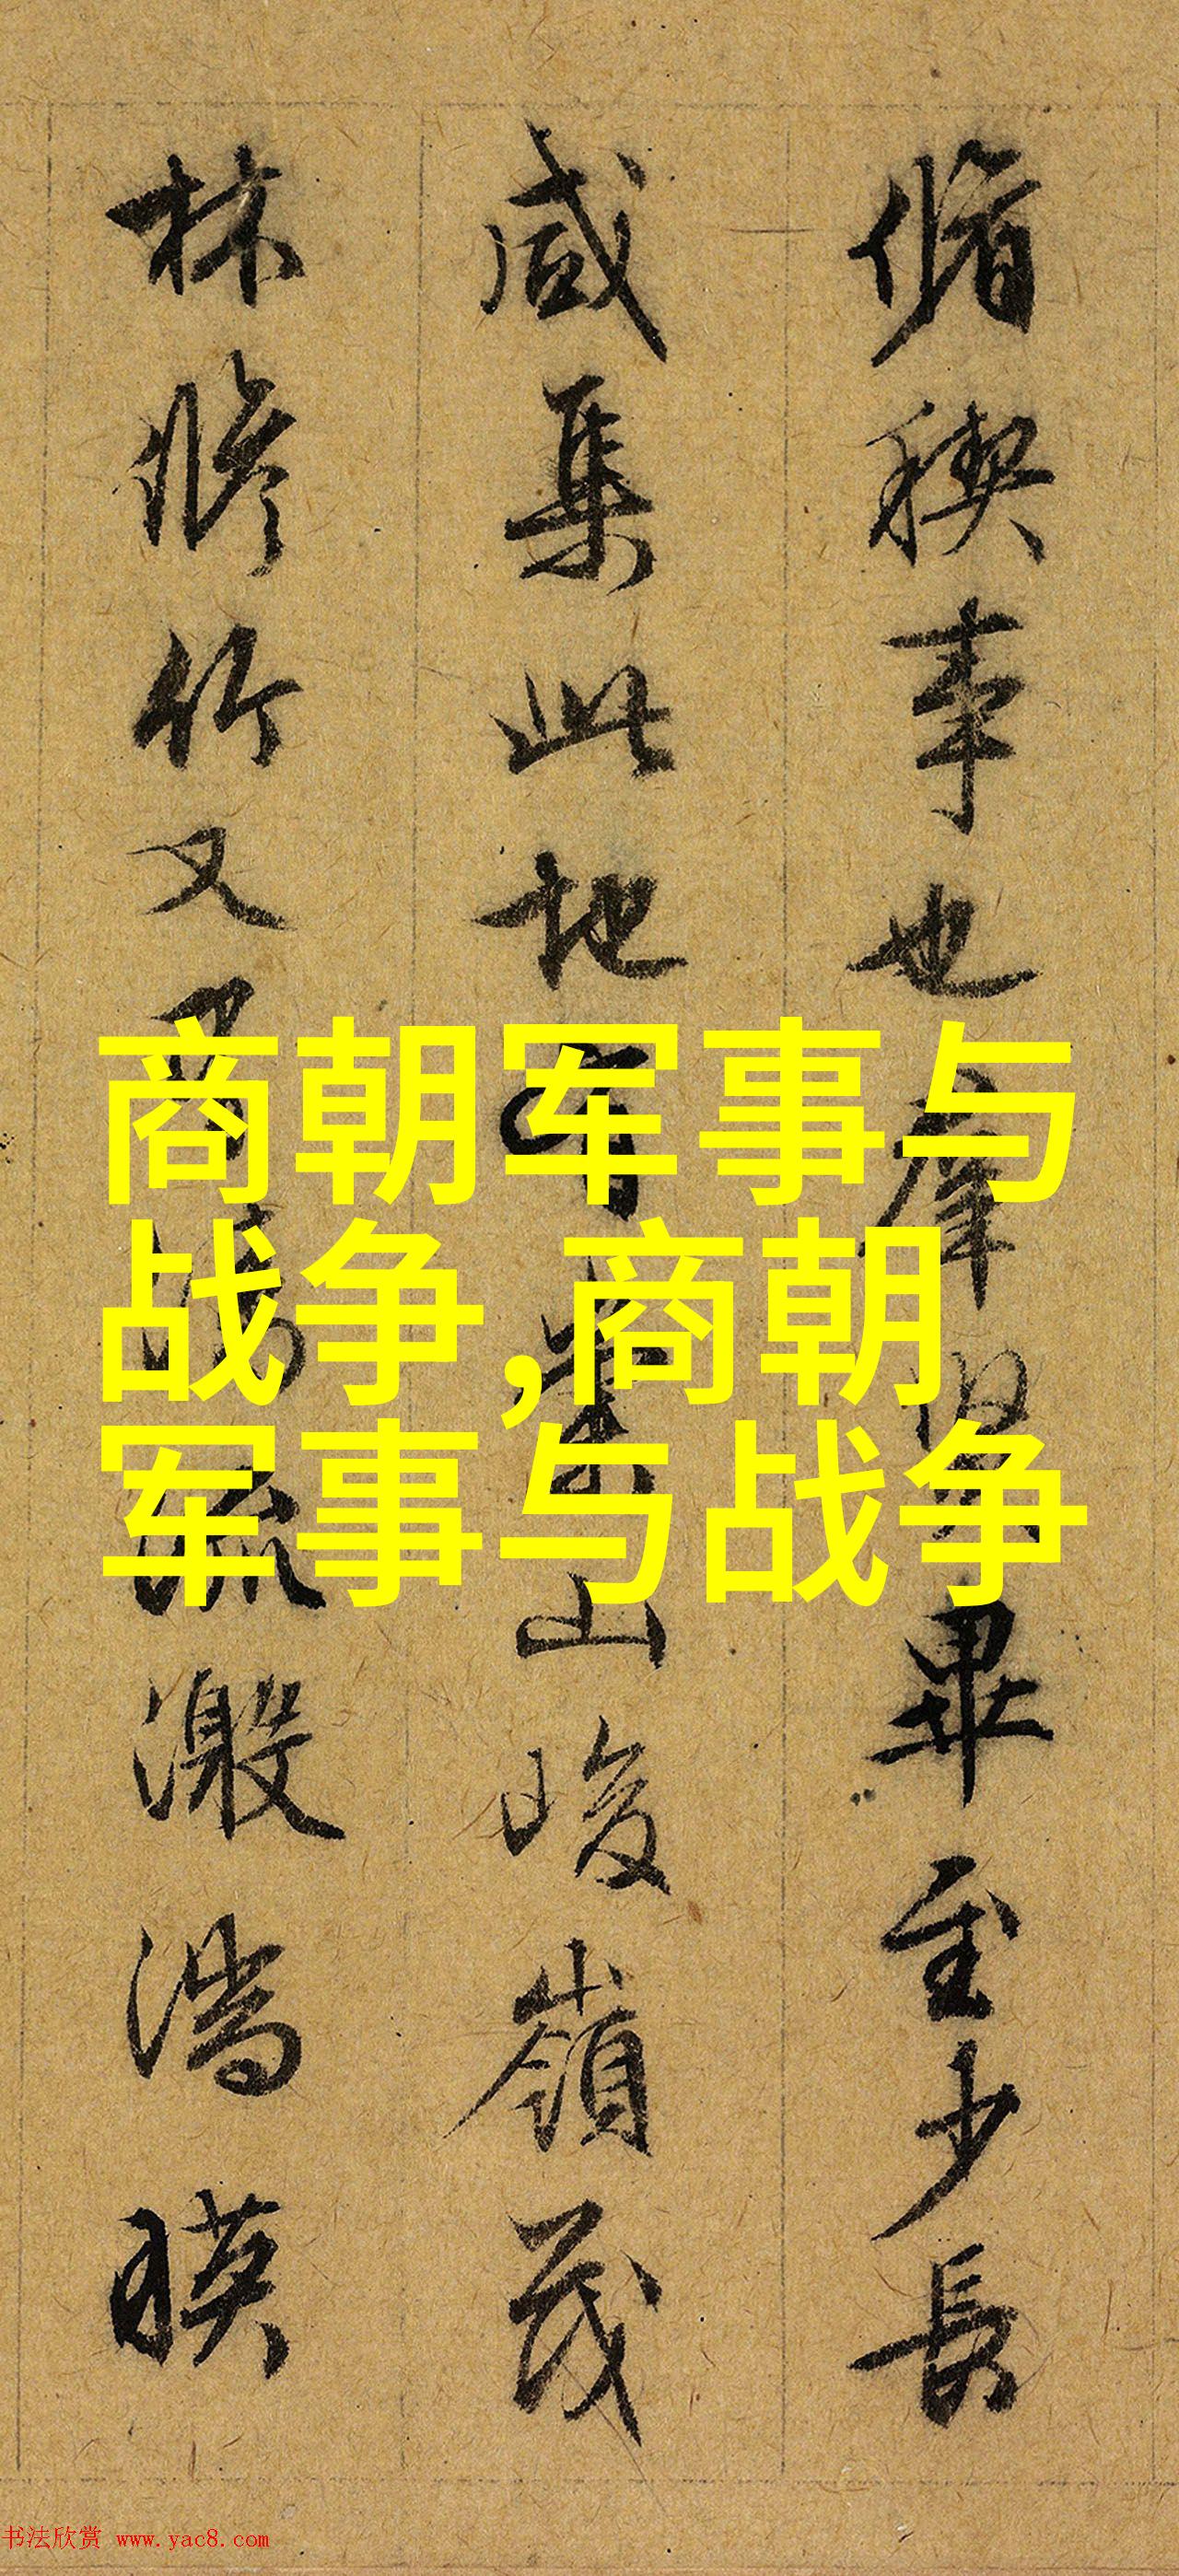 脩稧事也羣賢畢至少長
咸集此地有崇山峻領茂
林脩竹又有清流激湍暎
商朝军事与
战争,商朝
军事与战争
书法欣赏 www.yac8.com